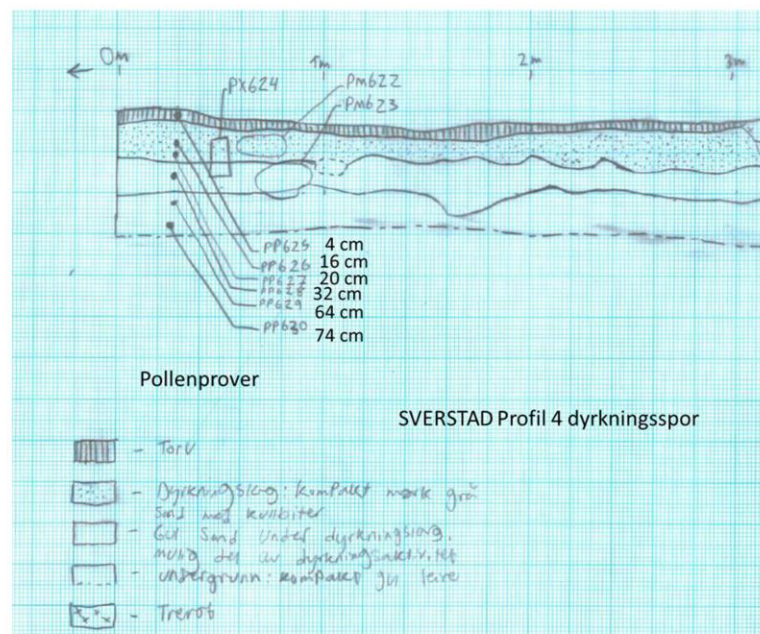 0m 1m 2m 3m
PX624
Pm622
Pm623
PP625 4 cm
PP626 16 cm
PP627 20 cm
PP628 32 cm
PP629 64 cm
PP630 74 cm
Pollenprover
SVERSTAD Profil 4 dyrkningsspor
- Torv
- Dyrkningslag: kompakt mørk grå
sand med kullbiter
- Gul sand under dyrkningslag.
mulig del av dyrkningsaktivitet
- undergrunn: kompakt gul leire
- Trerot